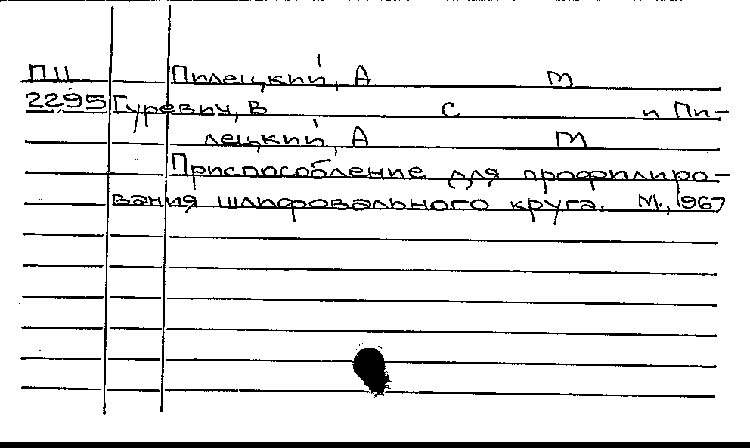 П11 Пилецкий, А М
2295 Гуревич, В С и Пи-
лецкий, А М
Приспособление для профилиро-
вания шлифовального круга. М., 967